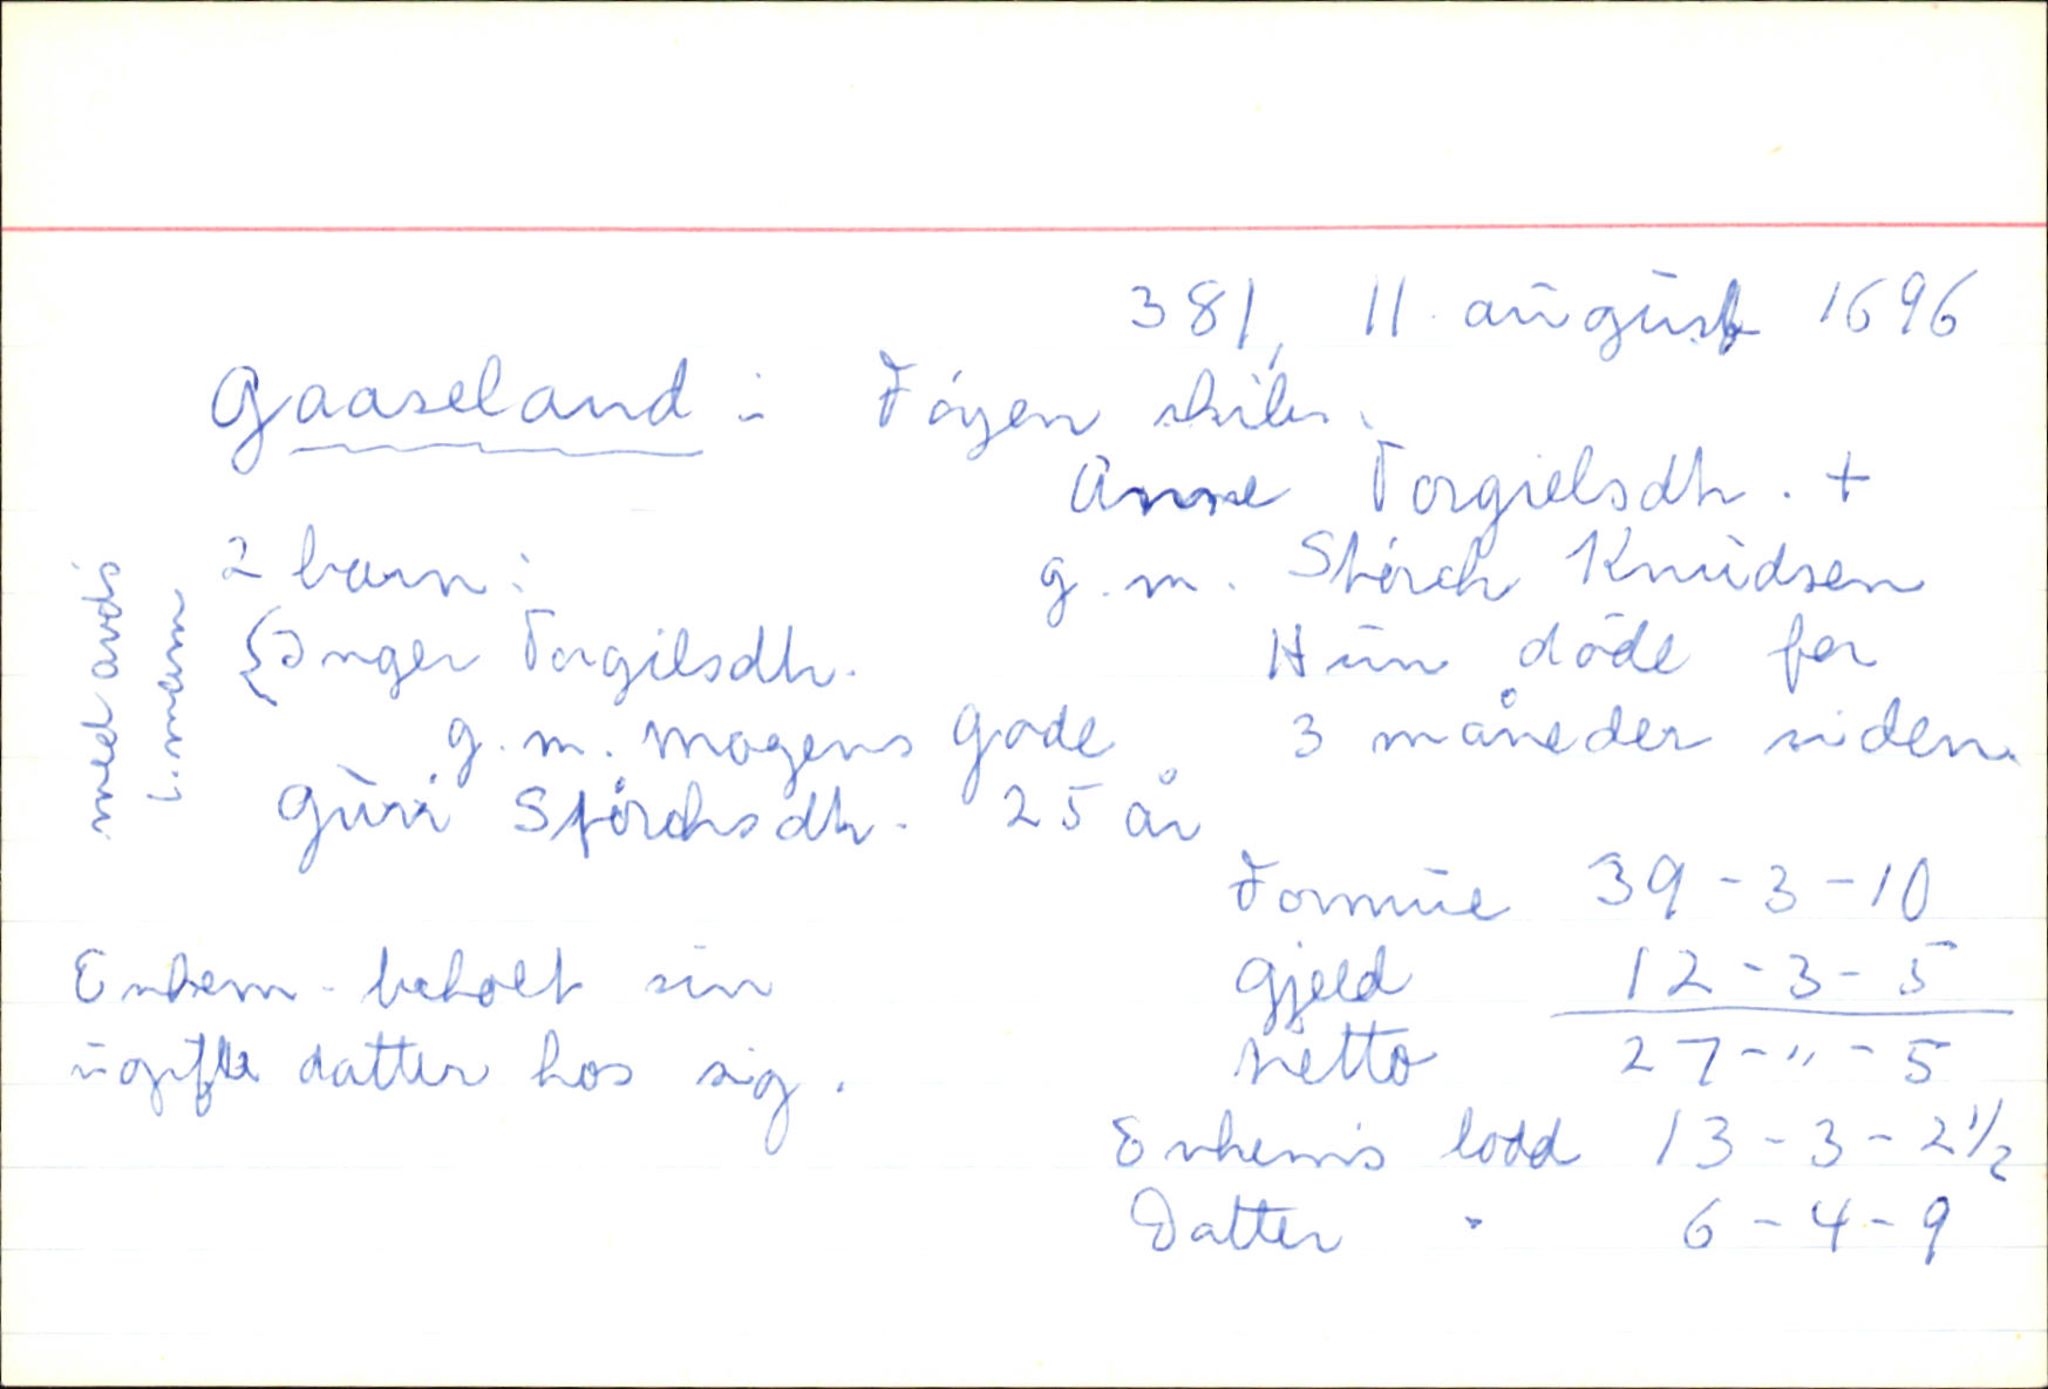 381, 11. august 1696
Gaaseland i Föyen skibr.
Anne Torgielsdtr. +
2 barn: g.m. Störch Knudsen
{Inger Torgilsdtr. Hun döde for
g.m. Mogens Gode 3 måneder siden.
Guri Störchsdtr. 25 år
med avds
1. mann
Formue 39-3-10
Enkem. beholt sin Gjeld 12-3-5
ugifte datter hos sig. Netto 27-"-5
Enkem's lodd 13-3-2 1/2
Datter " 6-4-9